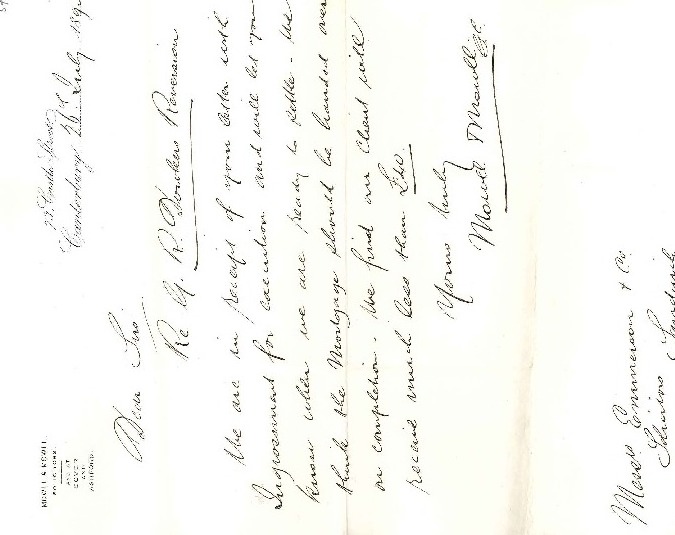 MOWLL & MOWLL
SOLICITORS
AND AT
DOVER
AND
ASHFORD
Castle Street
Canterbury 23rd July 189
Dear Sirs
Re G. R. Reversion
We are in receipt of your letter with
Ingrossment for execution and will let you
know when we are ready to settle - We
think the Mortgage should be handed over
on completion. We find our Client will
receive much less than £
Yours truly
Mowll & Mowll
Messrs Emmerson & Co.
Solicitors Sandwich